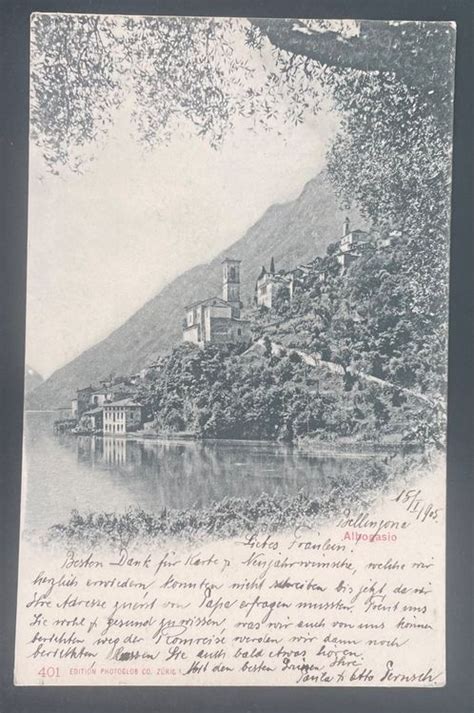 Bellinzona 18/I 1905.
Albogasio
Liebes Fräulein!
Besten Dank für Karte & Neujahrwünsche, welche wir
herzlich erwiedern konnten nicht schreiben bis jetzt, da wir
Ihre Adresse zuerst von Papa erfragen mussten. Freut uns
Sie wohl & gesund zu wissen, was wir auch von uns können
berichten, weg der Romreise werden wir dann noch
berichten Lassen Sie auch bald etwas hören.
Mit den besten Grüssen Ihre
Paula & Otto
401 EDITION PHOTOGLOB CO. ZÜRICH